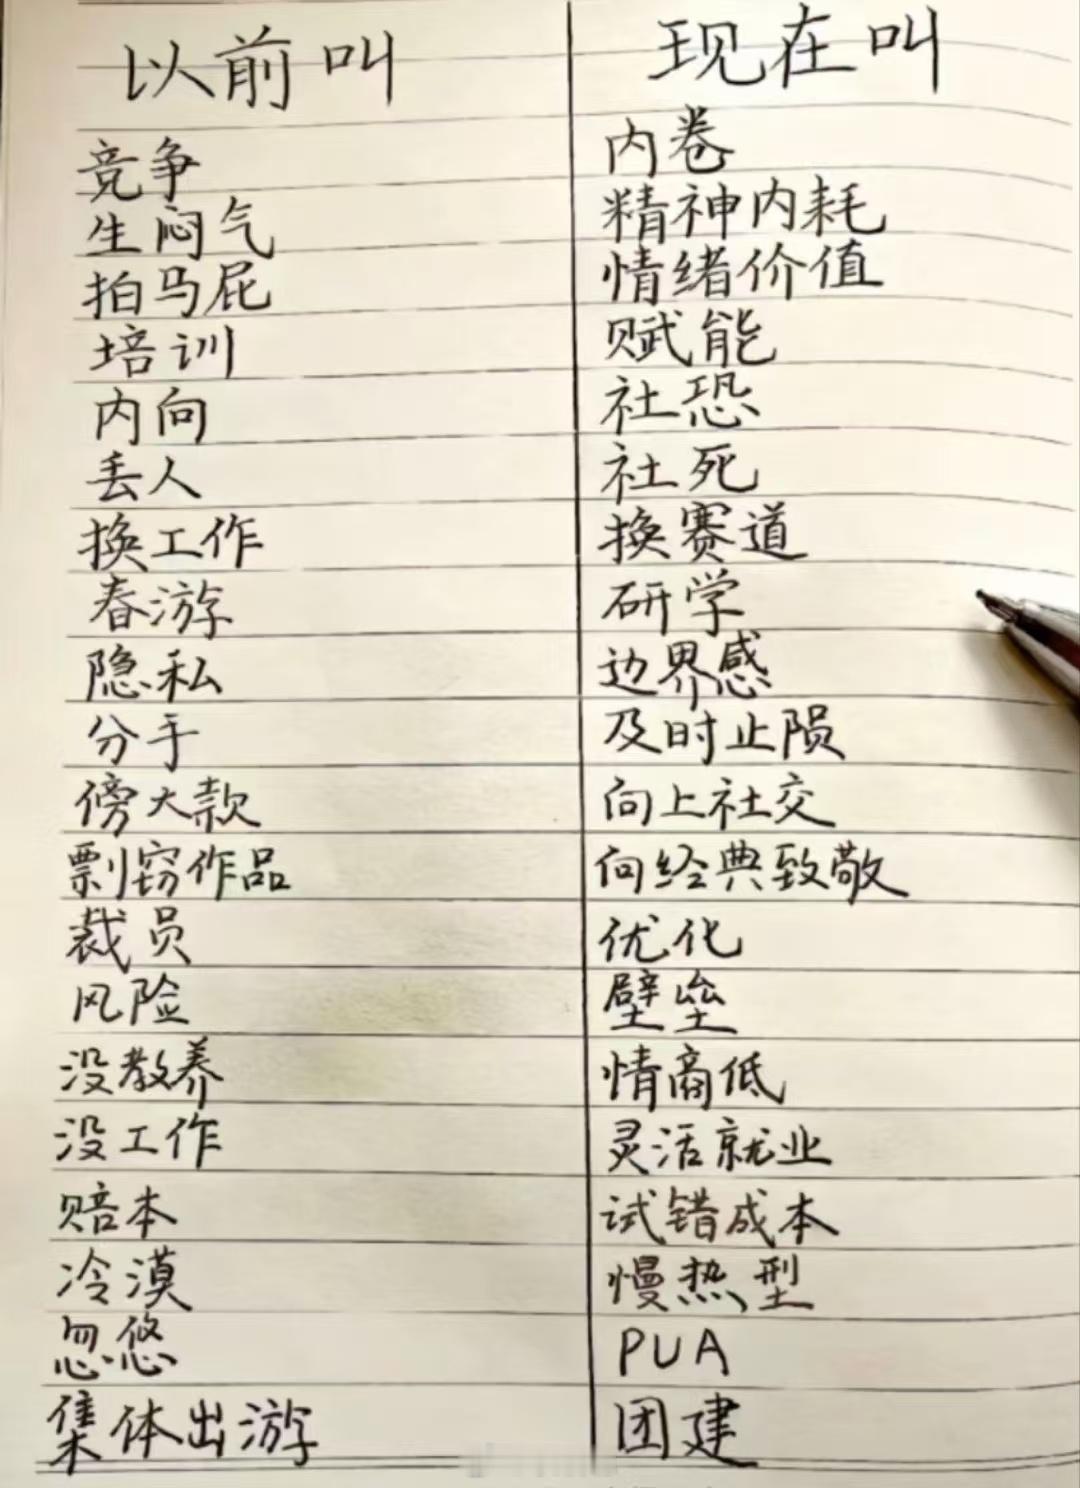 以前叫 现在叫
竞争 内卷
生闷气 精神内耗
拍马屁 情绪价值
培训 赋能
内向 社恐
丢人 社死
换工作 换赛道
春游 研学
隐私 边界感
分手 及时止陨
傍大款 向上社交
剽窃作品 向经典致敬
裁员 优化
风险 壁垒
没教养 情商低
没工作 灵活就业
赔本 试错成本
冷漠 慢热型
忽悠 PUA
集体出游 团建